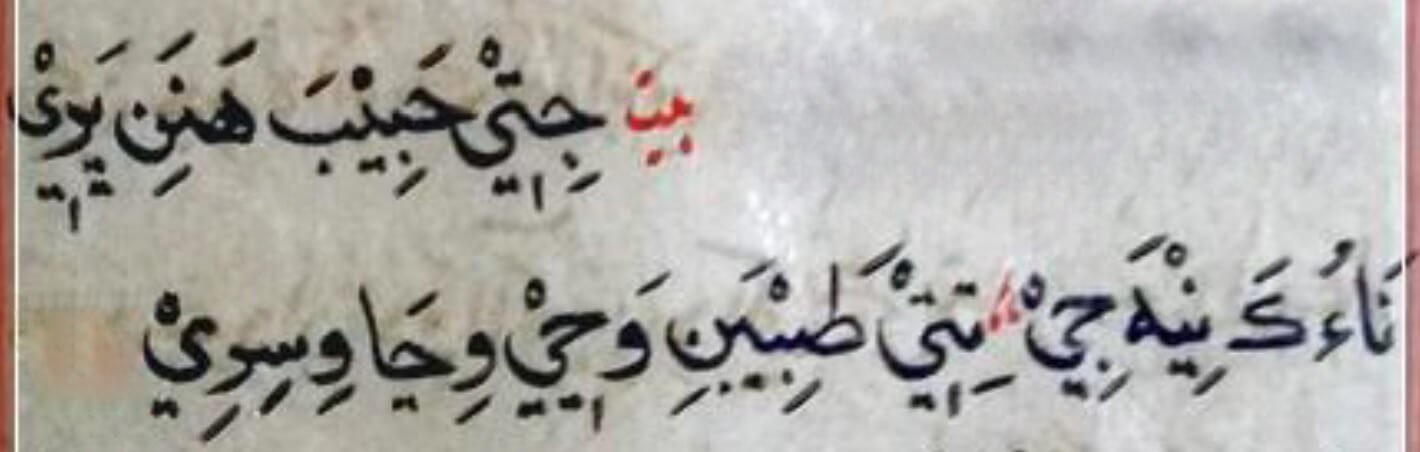 بيتْ جِتِيْ حَبِيْبَ هَنَنِ
نَاءُڪَ نِيْهَ جِيْ، تِتِيْ طَبِيْبَنِ وَڃِيْ وِڃَا وِسِرِيْ